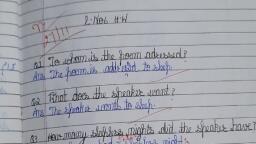 2-Nov H.W
Q1 To whom is the poem adressed?
Ans The poem is addressed to sleep.
Q2 What does the speaker want?
Ans The speaker wants to sleep.
Q3 How many sleepless nights did the speaker have?